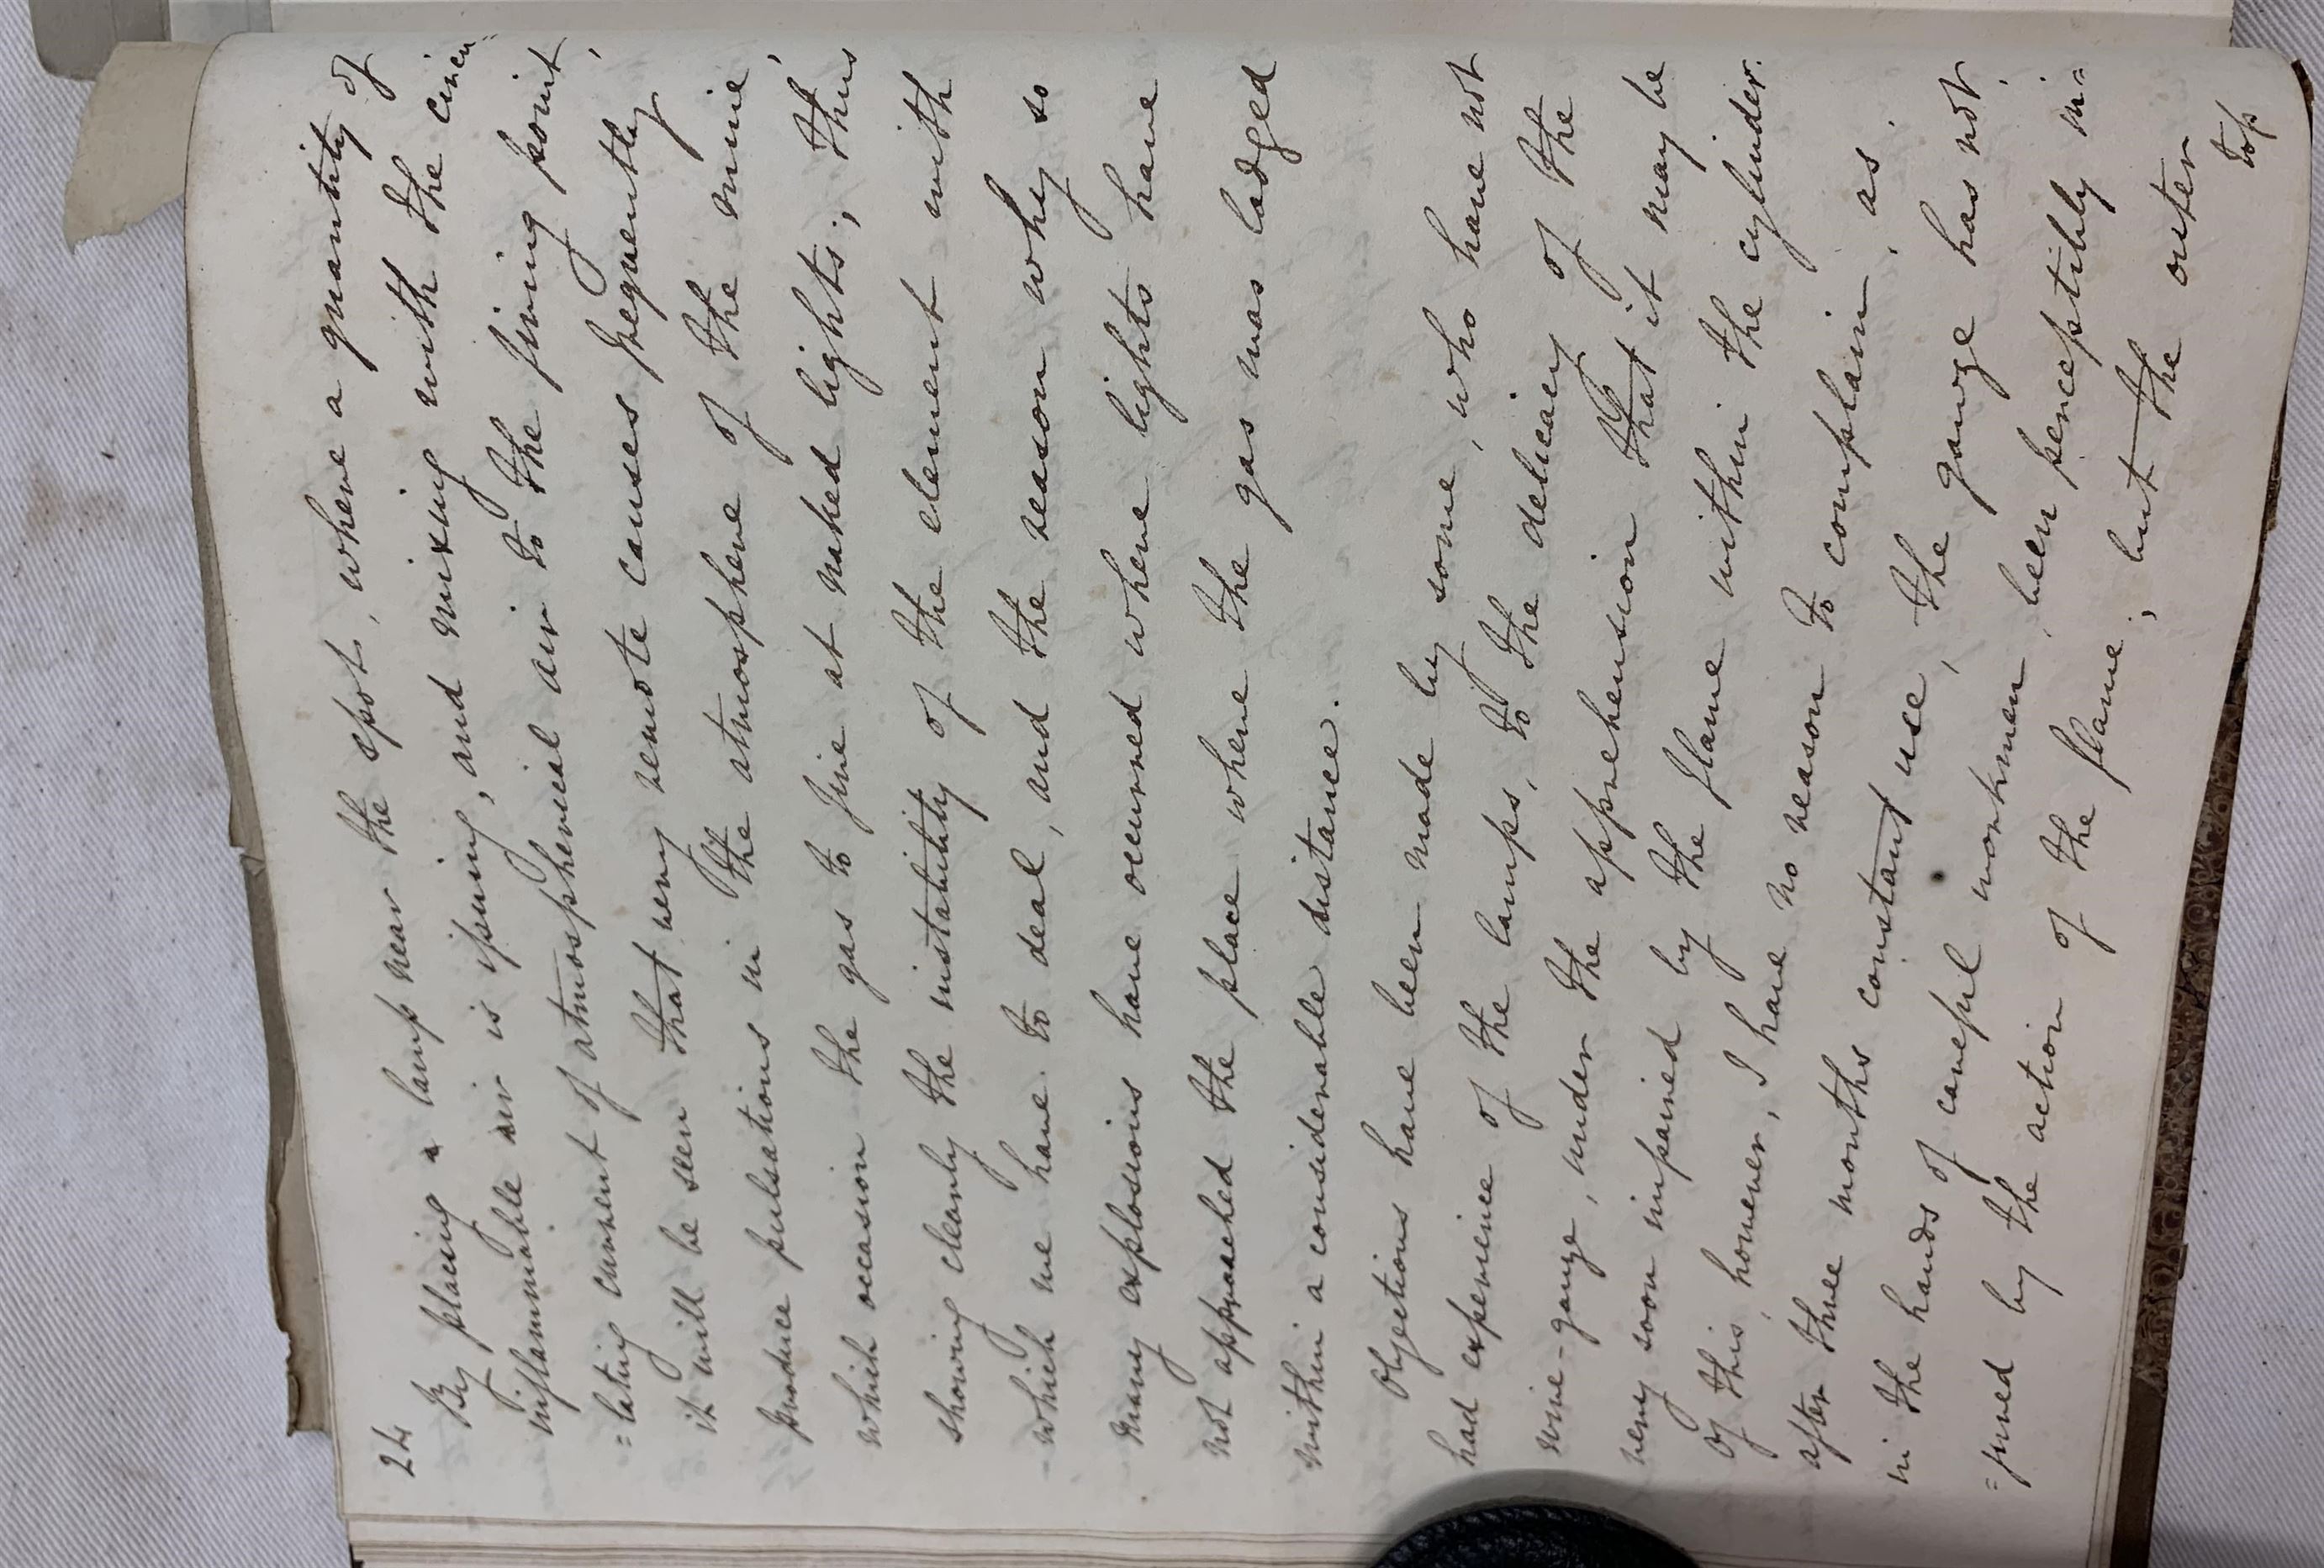 24
By placing a lamp near the spot, where a quantity of
inflammable air is issuing, and mixing with the circu=
=lating current of atmospherical air to the firing point,
it will be seen that very remote causes frequently
produce pulsations in the atmosphere of the mine,
which occasion the gas to fire at naked lights; thus
showing clearly the instability of the element with
which we have to deal, and the reason why so
many explosions have occurred where lights have
not approached the place where the gas was lodged
within a considerable distance.
Objections have been made by some, who have not
had experience of the lamps, to the delicacy of the
wire-gauze, under the apprehension that it may be
very soon impaired by the flame within the cylinder.
Of this, however, I have no reason to complain, as,
after three months constant use, the gauze has not,
in the hands of careful workmen, been perceptibly in=
=jured by the action of the flame; but the outer
top